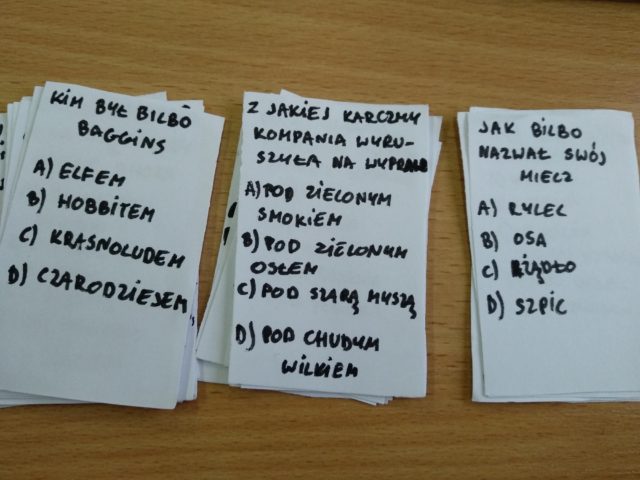 KIM BYŁ BILBO
BAGGINS
A) ELFEM
B) HOBBITEM
C) KRASNOLUDEM
D) CZARODZIEJEM
Z JAKIEJ KARCZMY
KOMPANIA WYRU-
SZYŁA NA WYPRAWĘ
A) POD ZIELONYM
SMOKIEM
B) POD ZIELONYM
OSŁEM
C) POD SZARĄ MYSZĄ
D) POD CHUDYM
WILKIEM
JAK BILBO
NAZWAŁ SWÓJ
MIECZ
A) RYLEC
B) OSA
C) ŻĄDŁO
D) SZPIC